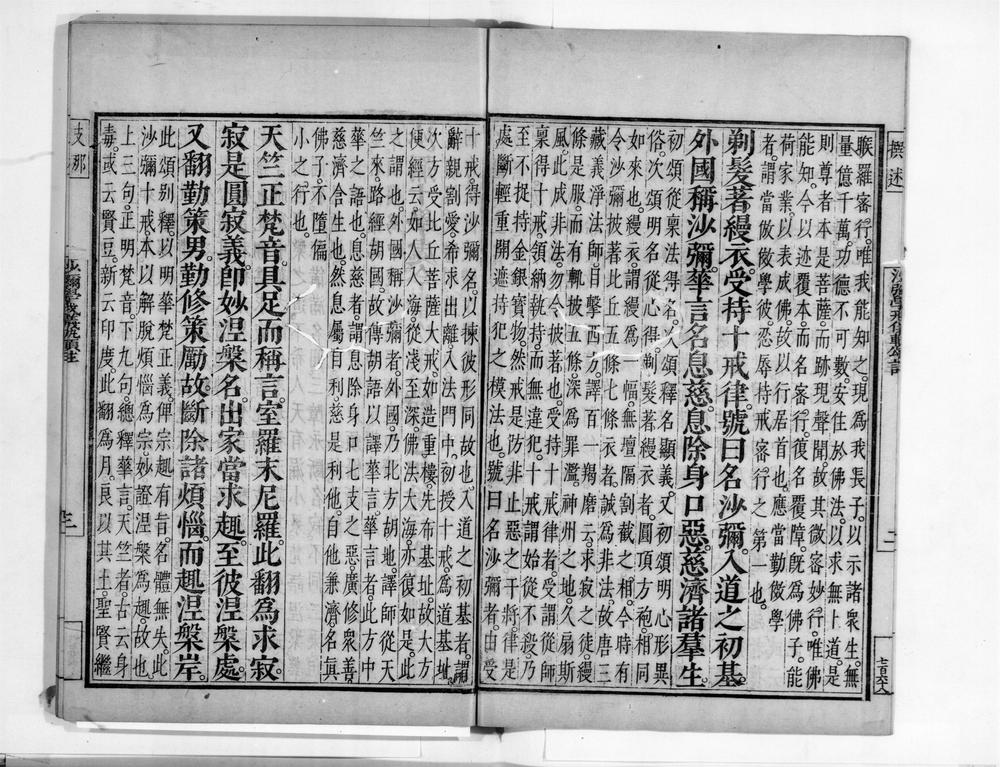 撰述
沙彌學戒儀軌頌註
二
七百六十八
睺羅密行。唯我能知之。現爲我長子。以示諸衆生。無
量億千萬。功德不可數。安住於佛法。以求無上道。是
則尊者本是菩薩。而跡現聲聞。故其微密妙行。唯佛
能知。今以迹覆本。而名密行。復名覆障。旣爲佛子。能
荷家業。以表成佛。故以行居首也。應當勤倣學
者。謂當倣學彼忍辱持戒密行之第一也。
剃髮著縵衣。受持十戒律。號曰名沙彌。入道之初基。
外國稱沙彌。華言名息慈。息除身口惡。慈濟諸羣生。
初頌從稟法得名。次頌釋名顯義。又初頌明心形異
俗。次頌明名從心得。剃髮著縵衣者。圓頂方袍。相同
如來也。縵衣。謂縵爲一幅。無壇隔割截之相。今時有
令沙彌披著比丘五條七條衣者。誠爲非法。故唐三
藏義淨法師。目擊西方。譯百一羯磨云。求寂之徒。縵
條是服。而有輒披五條。深爲罪濫。神州之地。久扇斯
風。此成非法。勿令披著也。受持十戒律者。受謂從師
稟得十戒。領納執持。而無違犯。十戒謂始從不殺。乃
至不捉持金銀寶物。然戒是防非止惡之干將。律是
處斷輕重開遮持犯之模法也。號曰名沙彌者。由受
十戒得沙彌名。以揀彼形同故也。入道之初基者。謂
辭親割愛。希求出離。入法門中。初授十戒。爲道基址。
次方受比丘菩薩大戒。如造重樓。先布基址。故大方
便經云。如人入海。從淺至深。佛法大海。亦復如是。此
之謂也。外國稱沙彌者。外國。乃北方胡地。譯師從天
竺來。路經胡國。故傳胡語。以譯華言。華言者。此方中
華之語也。息慈者。謂息除身口七支之惡。廣修衆善
慈濟含生也。然息屬自利。慈是利他。自他兼濟。名眞
佛子。不墮偏
小之行也。
天竺正梵音。具足而稱言。室羅末尼羅。此翻爲求寂。
寂是圓寂義。卽妙涅槃名。出家當求趣。至彼涅槃處。
又翻勤策男。勤修策勵故。斷除諸煩惱。而趣涅槃岸。
此頌別釋。以明華梵正義。俾宗趣有旨。名體無失。此
沙彌十戒。本以解脫煩惱爲宗。妙證涅槃爲趣。故也
上三句。正明梵音。下九句。總釋華言。天竺者。古云身
毒。或云賢豆。新云印度。此翻爲月。良以其土。聖賢繼
支那
沙彌學戒儀軌頌註
三